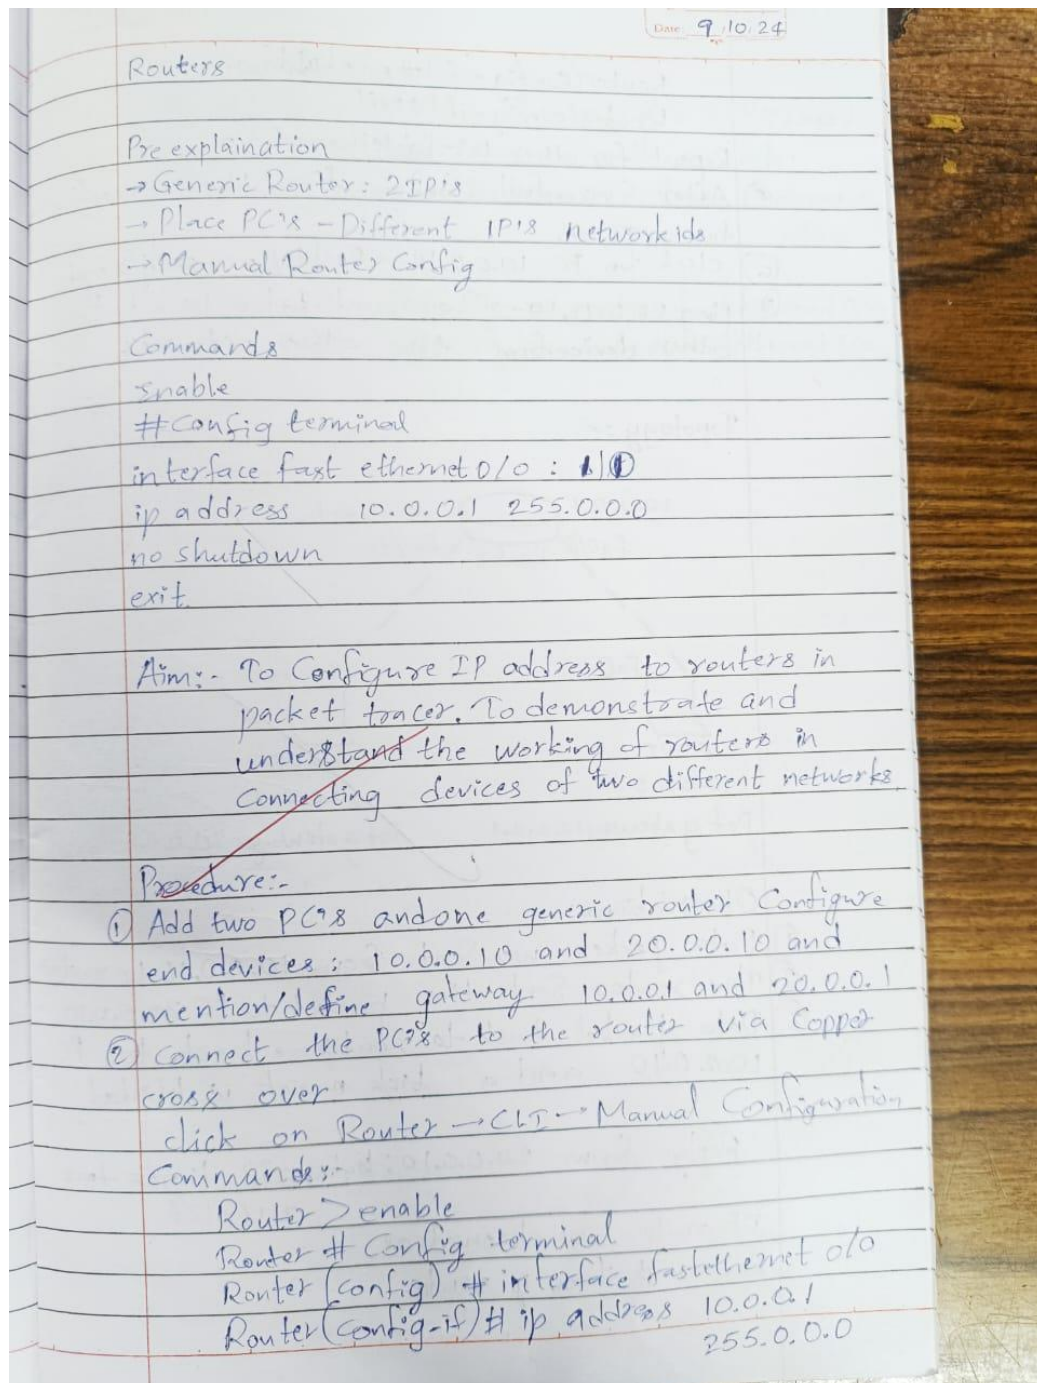 Date: 9.10.24
Routers
Pre explaination
→ Generic Router: 2IP's
→ Place PC's - Different IP's network ids
→ Manual Router Config
Commands
Enable
#Config terminal
interface fast ethernet 0/0 :
ip address 10.0.0.1 255.0.0.0
no shutdown
exit.
Aim:- To Configure IP address to routers in
packet tracer. To demonstrate and
understand the working of routers in
Connecting devices of two different networks.
Procedure:-
① Add two PC's and one generic router Configure
end devices: 10.0.0.10 and 20.0.0.10 and
mention/define gateway 10.0.0.1 and 20.0.0.1
② Connect the PC's to the router via Copper
cross over
click on Router → CLI → Manual Configuration
Commands:-
Router > enable
Router # Config terminal
Router (config) # interface fastethernet 0/0
Router (config-if) # ip address 10.0.0.1
255.0.0.0